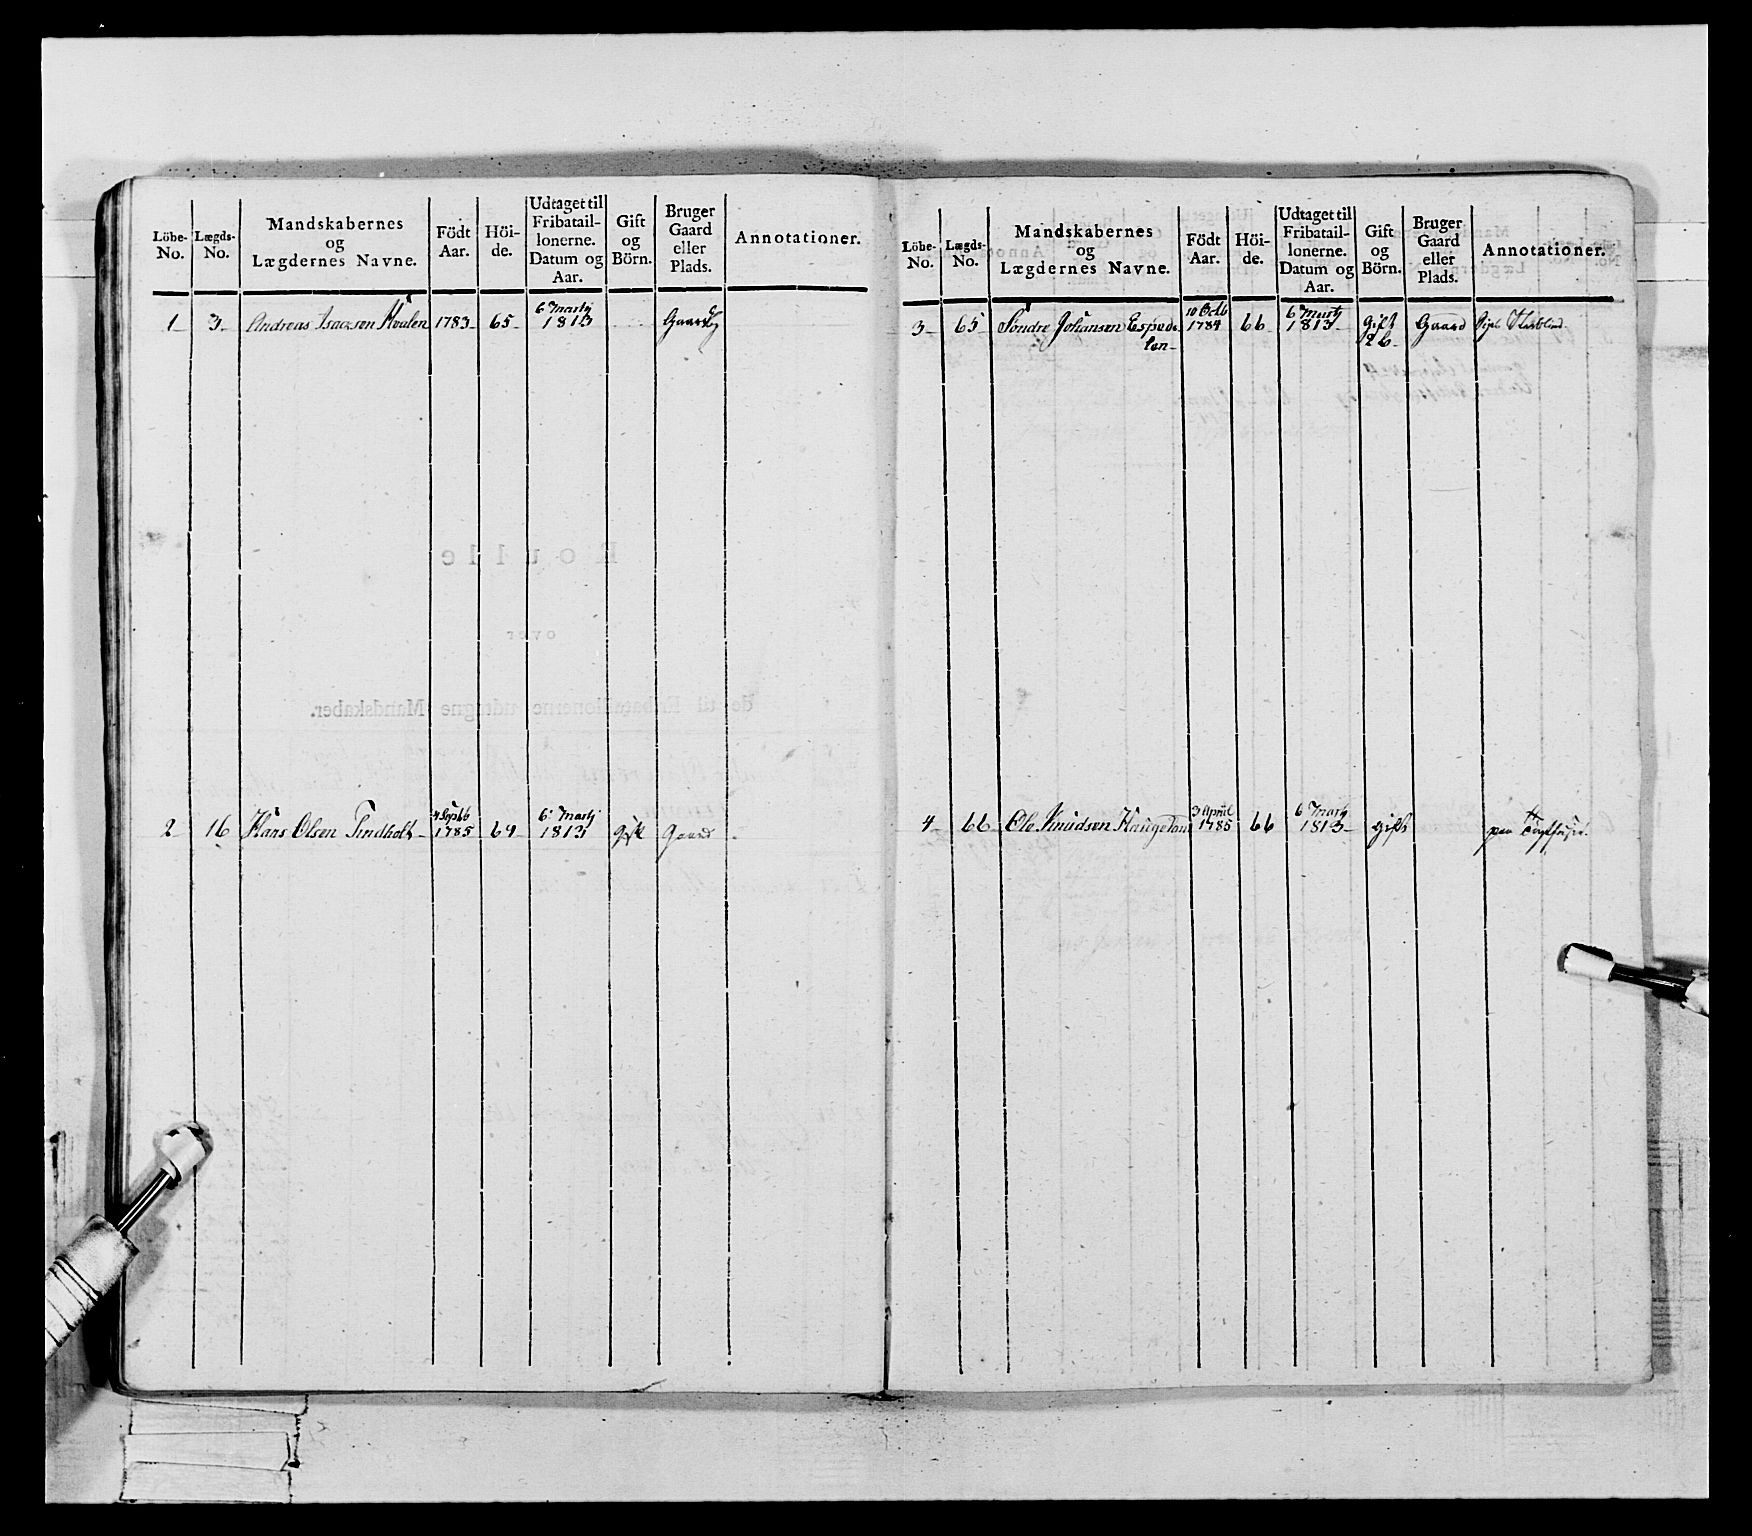 Löbe-No. Lægds-No. Mandskabernes og Lægdernes Navne. Födt Aar. Höi-de. Udtaget til Fribatail-lonerne. Datum og Aar. Gift og Börn. Bruger Gaard eller Plads. Annotationer.
1 3 Andreas Isacsen 1783 65 6 Martj 1813
2 16 Hans Olsen Tindholt 4 Septb 1785 64 6 Martj 1813 gift Gaard
Löbe-No. Lægds-No. Mandskabernes og Lægdernes Navne. Födt Aar. Höi-de. Udtaget til Fribatail-lonerne. Datum og Aar. Gift og Börn. Bruger Gaard eller Plads. Annotationer.
3 65 Söndre Johansen Espede 10 Octb 1784 66 6 Martj 1813 gift Gaard
len 2 b
4 66 Ole Knudsen 3 April 1785 66 6 Martj 1813 gift paa